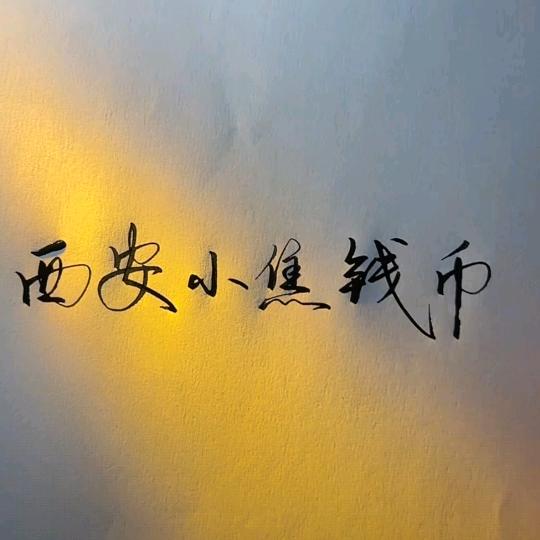 西安小焦钱币